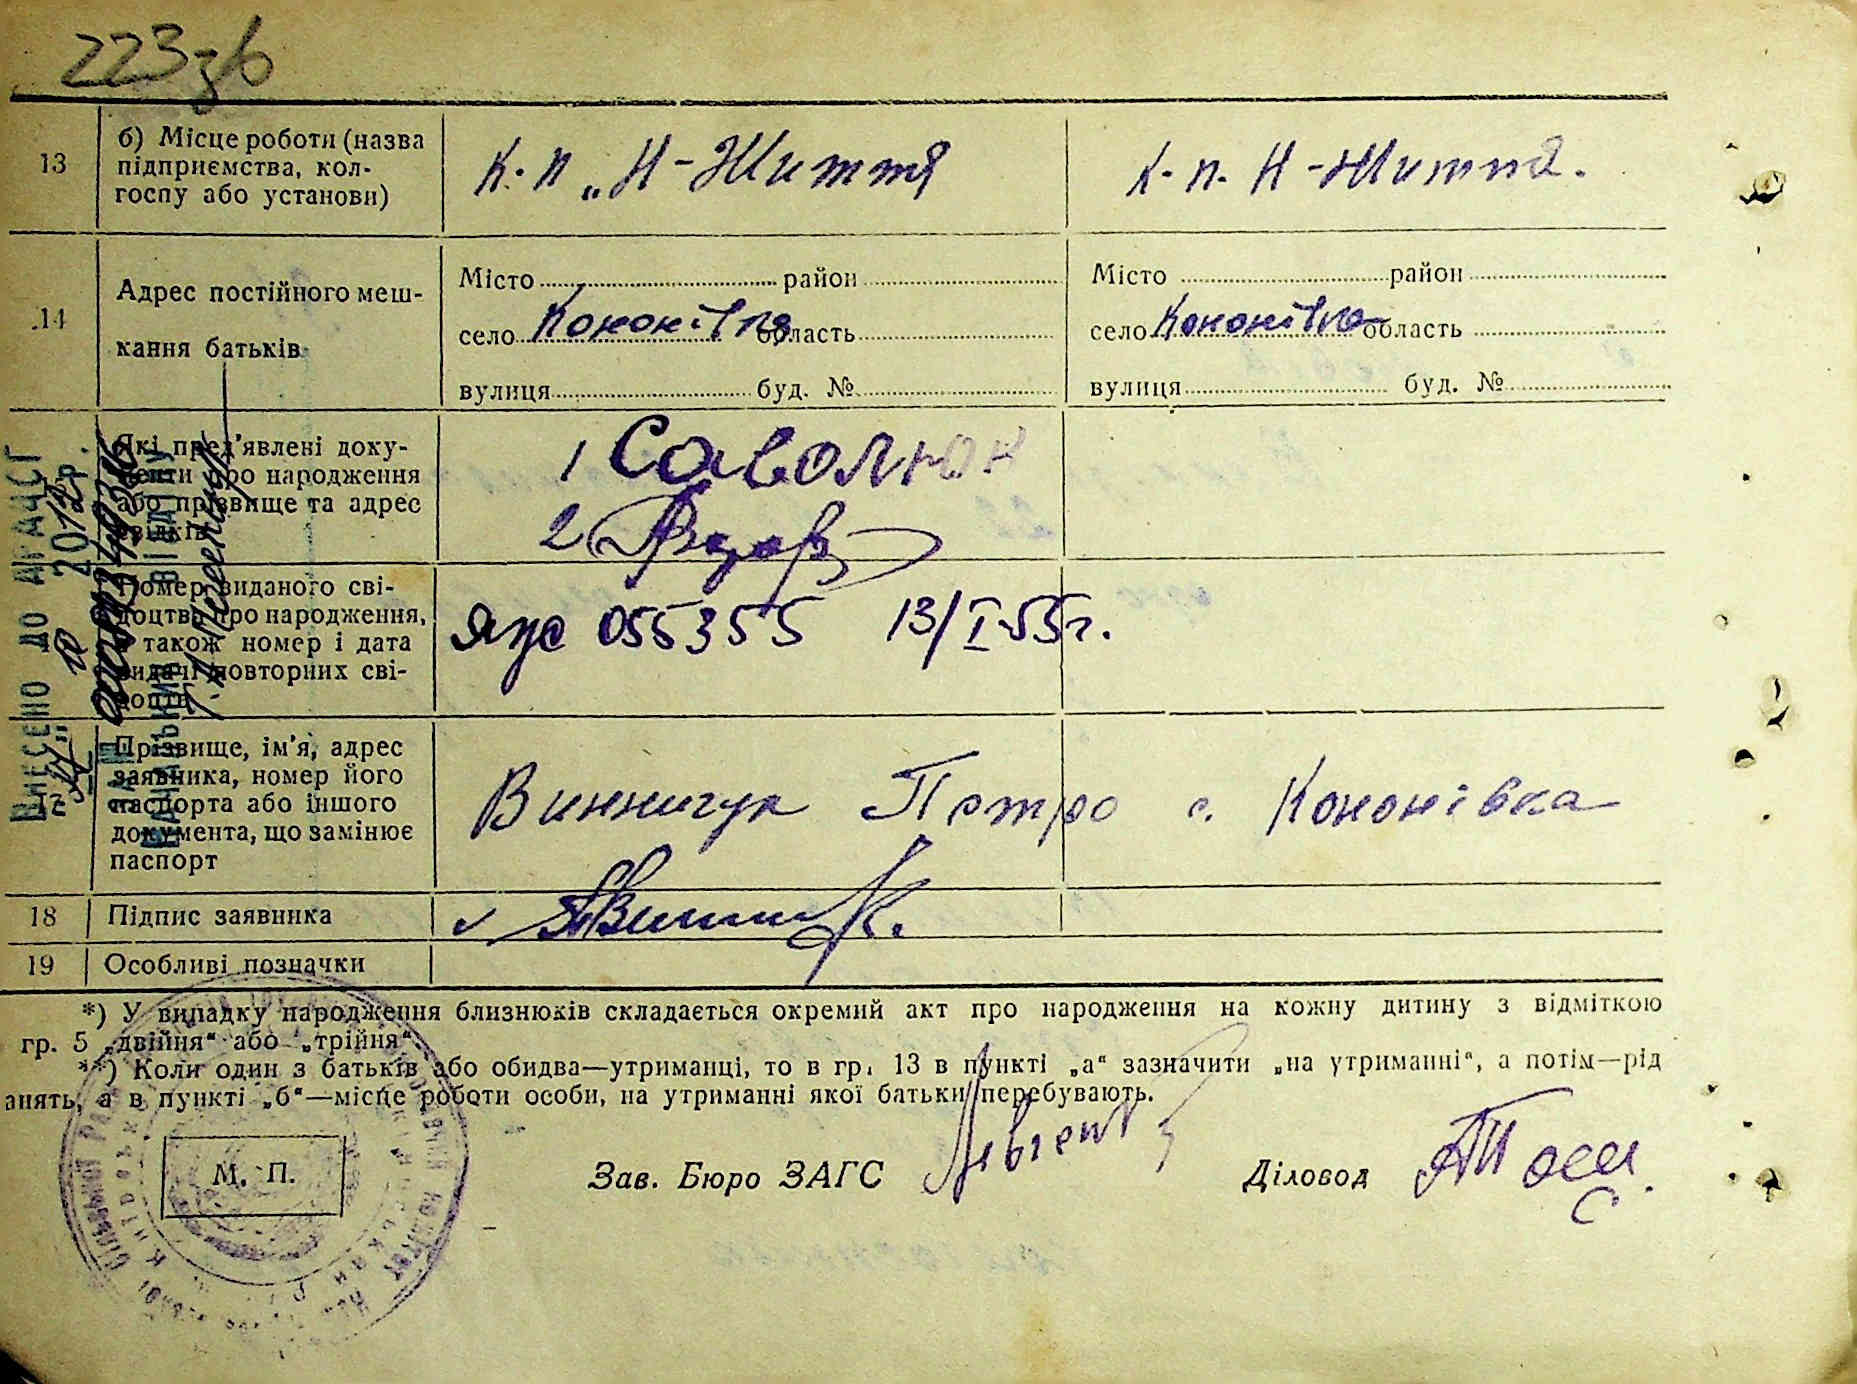 223зв
13 б) Місце роботи (назва підприємства, колгоспу або установи)
к.п „Н-Життя
к.п. Н-Життя.
14 Адрес постійного мешкання батьків
Місто район
село Кононівка область
вулиця буд. №
Місто район
село Кононівка область
вулиця буд. №
Які пред'явлені документи про народження або прізвище та адрес свідків
1 Саволюк
2
Номер виданого свідоцтва про народження, а також номер і дата видачі повторних свідоцтв
ЯЦС 055355 13/I-55г.
17 Прізвище, ім'я, адрес заявника, номер його паспорта або іншого документа, що замінює паспорт
Винничук Петро с. Кононівка
18 Підпис заявника
19 Особливі позначки
Внесено до ДРАЦСГ
2012р.
*) У випадку народження близнюків складається окремий акт про народження на кожну дитину з відміткою
гр. 5 „двійня“ або „трійня“.
**) Коли один з батьків або обидва—утриманці, то в гр. 13 в пункті „а“ зазначити „на утриманні“, а потім—рід
анять, а в пункті „б“—місце роботи особи, на утриманні якої батьки перебувають.
М. П.
Зав. Бюро ЗАГС
Діловод